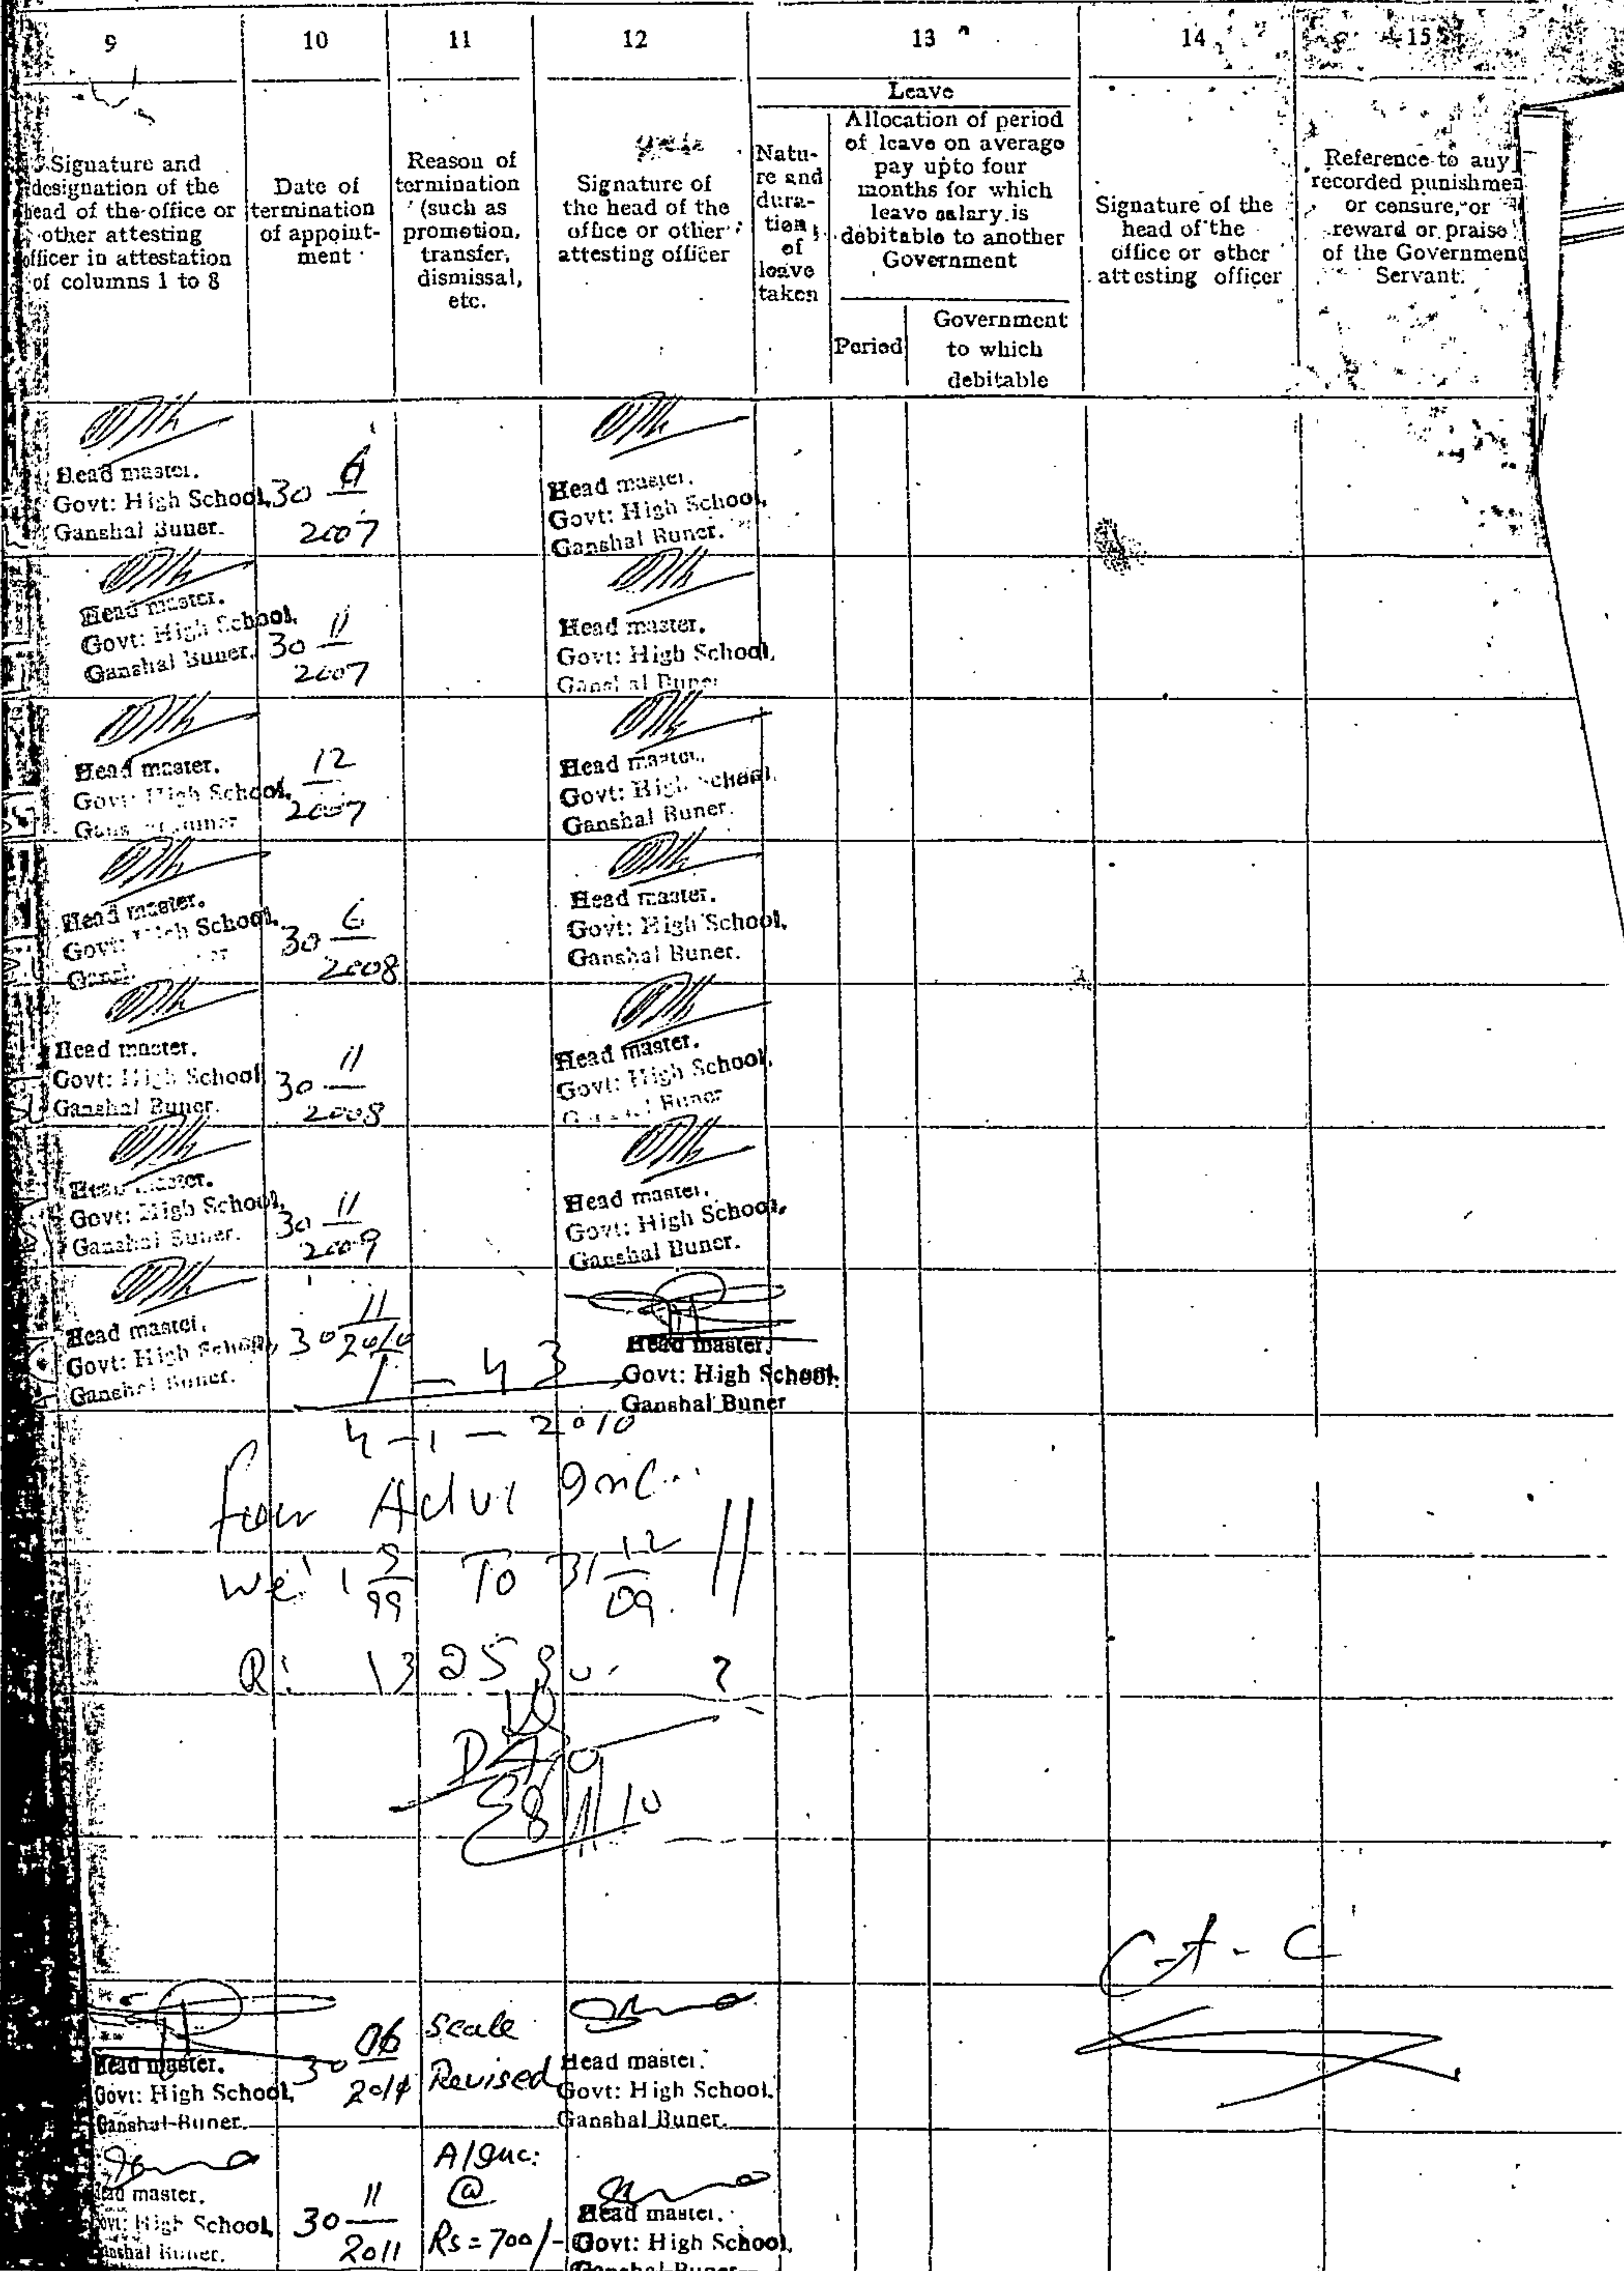 9 10 11 12 13 14 15
Leave
Signature and
designation of the
head of the office or
other attesting
officer in attestation
of columns 1 to 8
Date of
termination
of appoint-
ment
Reason of
termination
(such as
promotion,
transfer,
dismissal,
etc.
Signature of
the head of the
office or other
attesting officer
Natu-
re and
dura-
tion
of
leave
taken
Allocation of period
of leave on average
pay upto four
months for which
leave salary is
debitable to another
Government
Period
Government
to which
debitable
Signature of the
head of the
office or other
attesting officer
Reference to any
recorded punishmen
or censure, or
reward or praise
of the Government
Servant.
Head master.
Govt: High School,
Ganshal Buner.
30
2007
Head master.
Govt: High School,
Ganshal Buner.
Head master.
Govt: High School,
Ganshal Buner.
30 11
2007
Head master.
Govt: High School,
Head master.
Govt: High School,
12
2007
Head master.
Govt: High School,
Ganshal Buner.
Head master.
Govt: High School,
30 6
2008
Head master.
Govt: High School,
Ganshal Buner.
Head master.
Govt: High School
Ganshal Buner.
30 11
2008
Head master.
Govt: High School,
Buner
Head master.
Govt: High School,
Ganshal Buner.
30 11
2009
Head master.
Govt: High School,
Ganshal Buner.
Head master.
Govt: High School,
Ganshal Buner.
30 11
2010
Head master.
Govt: High School,
Ganshal Buner
1 - 43
4-1-2010
four Advi Inc..
We 1 9/99 To 31 12/09. //
C-A-C
Head master.
Govt: High School,
Ganshal Buner.
30 06
2011
Scale
Revised
Head master.
Govt: High School,
Ganshal Buner.
master.
High School,
Buner.
30 11
2011
A/Inc:
@
Rs=700/-
Head master.
Govt: High School,
Ganshal Buner